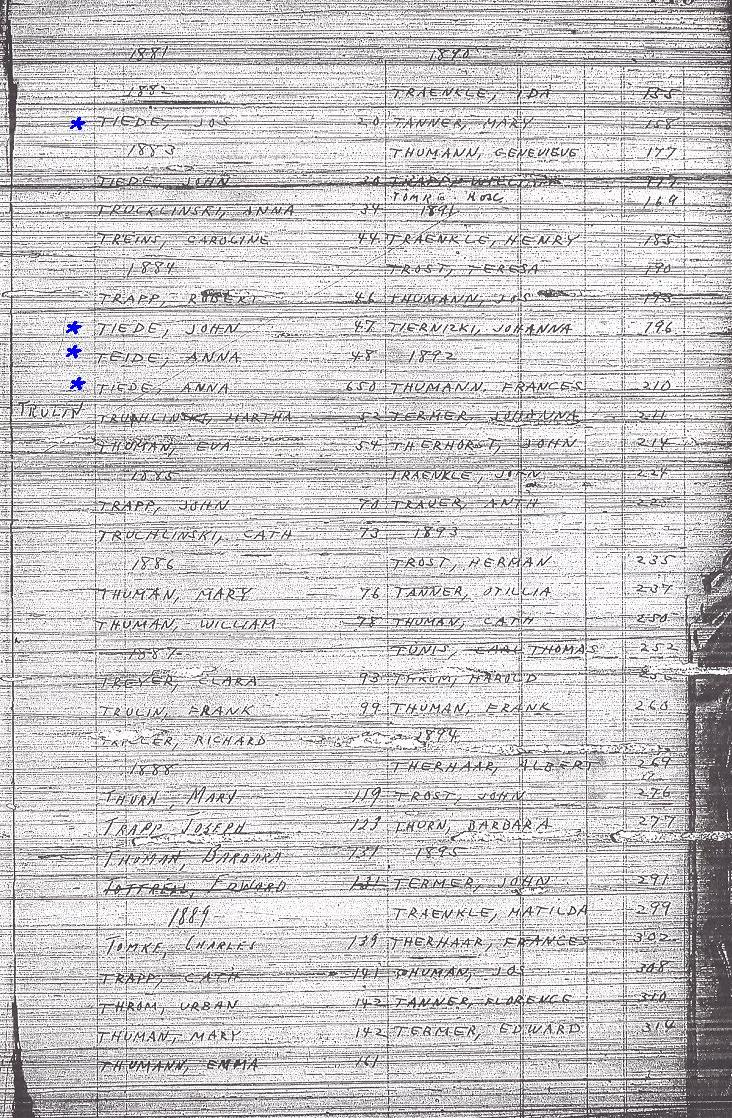 1881
1882
TIEDE, JOS 20
1883
TIEDE, JOHN
TROCKLINSKI, ANNA 34
TREINS, CAROLINE 44
1884
TRAPP, ROBERT 46
TIEDE, JOHN 47
TEIDE, ANNA 48
TIEDE, ANNA 650
TRULIN TRUHLINSKI, MARTHA 52
THUMAN, EVA 54
1885
TRAPP, JOHN 70
TRUCHLINSKI, CATH 73
1886
THUMAN, MARY 76
THUMAN, WILLIAM 78
1887
TREYER, CLARA 93
TRULIN, FRANK 99
RICHARD
1888
THURN, MARY 119
TRAPP, JOSEPH 123
THUMAN, BARBARA 131
TOTTRELL, EDWARD 131
1889
TOMKE, CHARLES 139
TRAPP, CATH 141
THROM, URBAN 142
THUMAN, MARY 142
THUMANN, EMMA 161
1890
TRAENKLE, IDA 155
TANNER, MARY 158
THUMANN, GENEVIEVE 177
TRAPP, WILLIAM 177
TOMKE ROSE 169
1891
TRAENKLE, HENRY 185
TROST, TERESA 190
THUMANN, JOS 195
TIERNIZKI, JOHANNA 196
1892
THUMANN, FRANCES 210
TERMER, JOHONNA 211
THERHORST, JOHN 214
TRAENKLE, JOHN 224
TRAUER, ANTH 225
1893
TROST, HERMAN 235
TANNER, OTILLIA 237
THUMAN, CATH 250
TUNIS, EARL THOMAS 252
THROM, HAROLD
THUMAN, FRANK 260
1894
THERHAAR, ALBERT 269
TROST, JOHN 276
THURN, BARBARA 277
1895
TERMER, JOHN 291
TRAENKLE, MATILDA 299
THERHAAR, FRANCES 302
THUMAN, JOS 308
TANNER, FLORENCE 310
TERMER, EDWARD 314